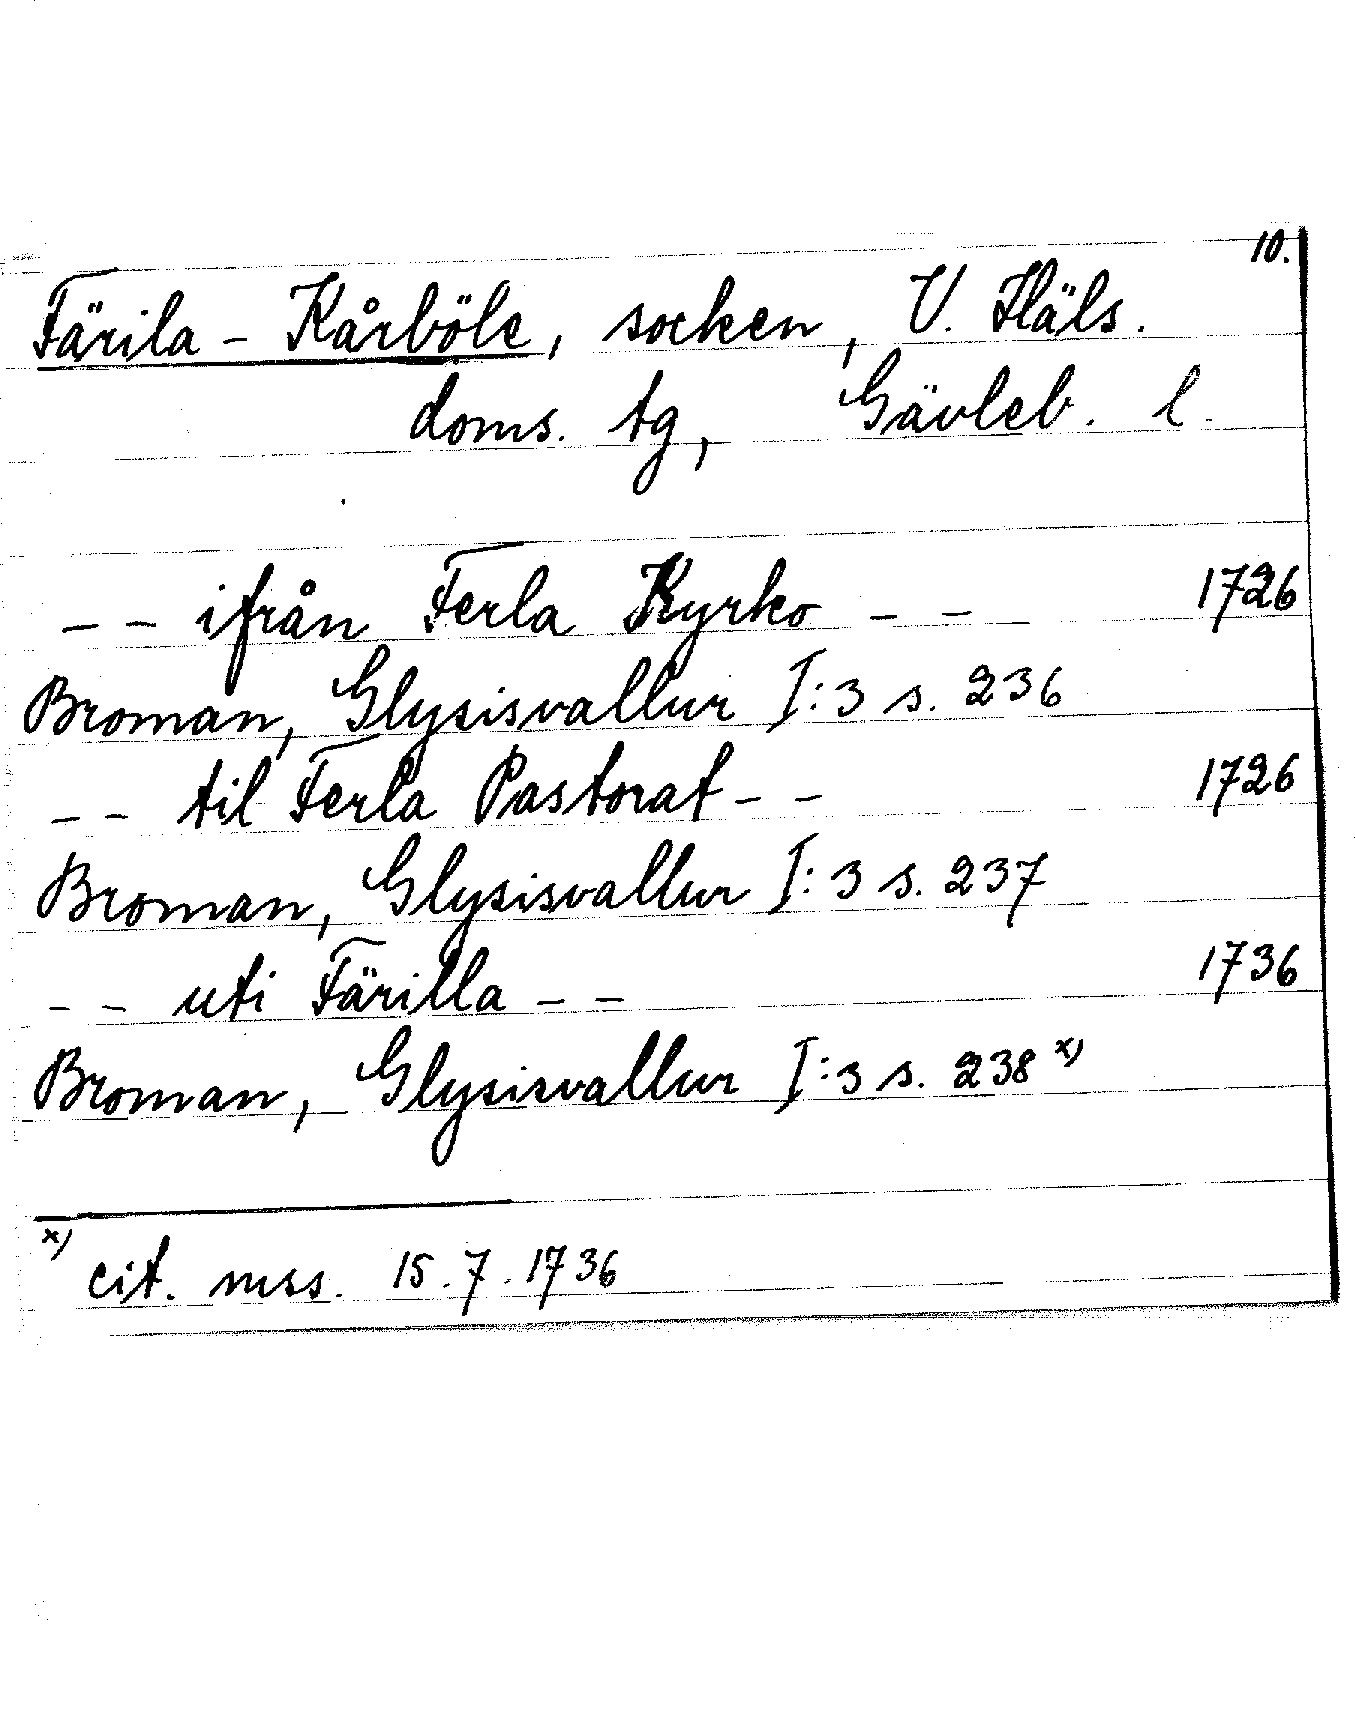 10.
Färila - Kårböle, socken, V. Häls.
doms. tg, Gävleb. l.
- - ifrån Ferla Kyrko - - 1726
Broman, Glysisvallur I:3 s. 236
- - til Ferla Pastorat - - 1726
Broman, Glysisvallur I:3 s. 237
- - uti Färilla - - 1736
Broman, Glysisvallur I:3 s. 238 x)
x) cit. mss. 15.7.1736